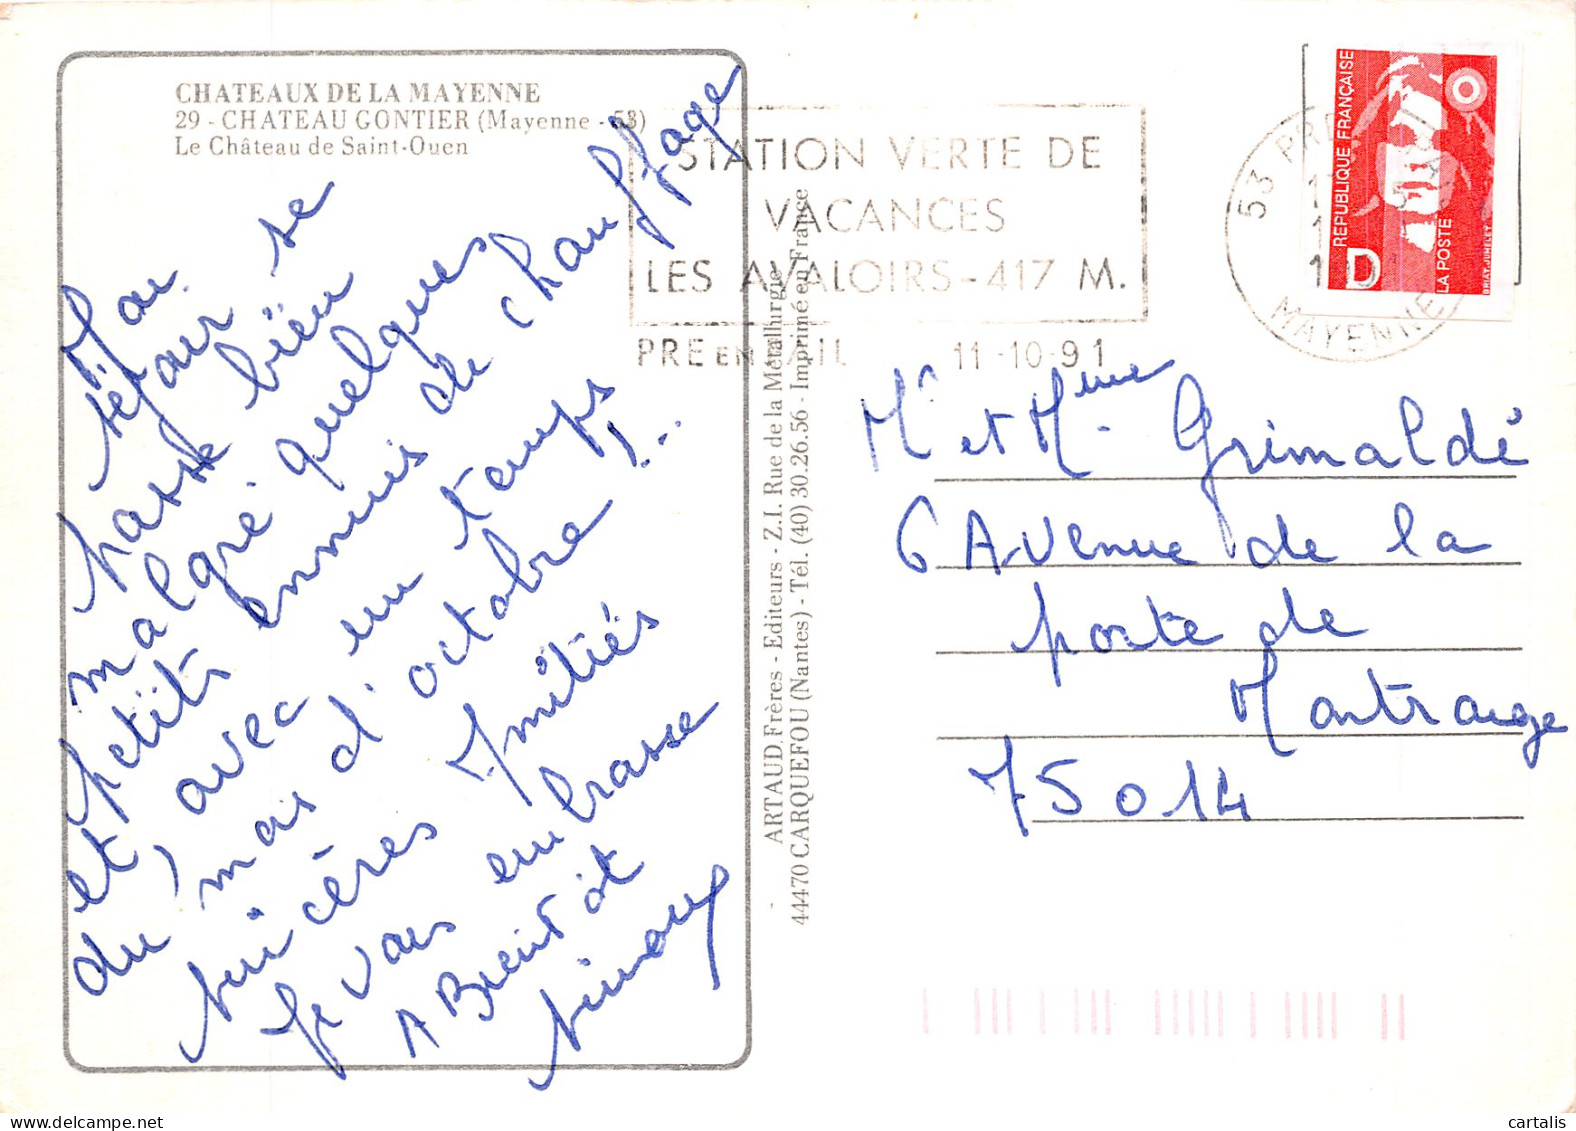 CHATEAUX DE LA MAYENNE
29 - CHATEAU GONTIER (Mayenne - 53)
Le Château de Saint-Ouen
Mon
séjour se
passe bien
malgré quelques
petits ennuis de chauffage
et, avec un temps
du mois d'octobre !...
Sincères Amitiés
Je vous embrasse
A Bientôt
Simony
ARTAUD Frères - Editeurs - Z.I. Rue de la Métallurgie
44470 CARQUEFOU (Nantes) - Tél. (40) 30.26.56 - Imprimé en France
STATION VERTE DE
VACANCES
LES AVALOIRS - 417 M.
PRE EN PAIL 11-10-91
53 PRE
MAYENNE
REPUBLIQUE FRANÇAISE
D
LA POSTE
BRIAT. JUMELET
Mr et Mme Grimaldé
6 Avenue de la
porte de
Montrouge
75014
cartalis